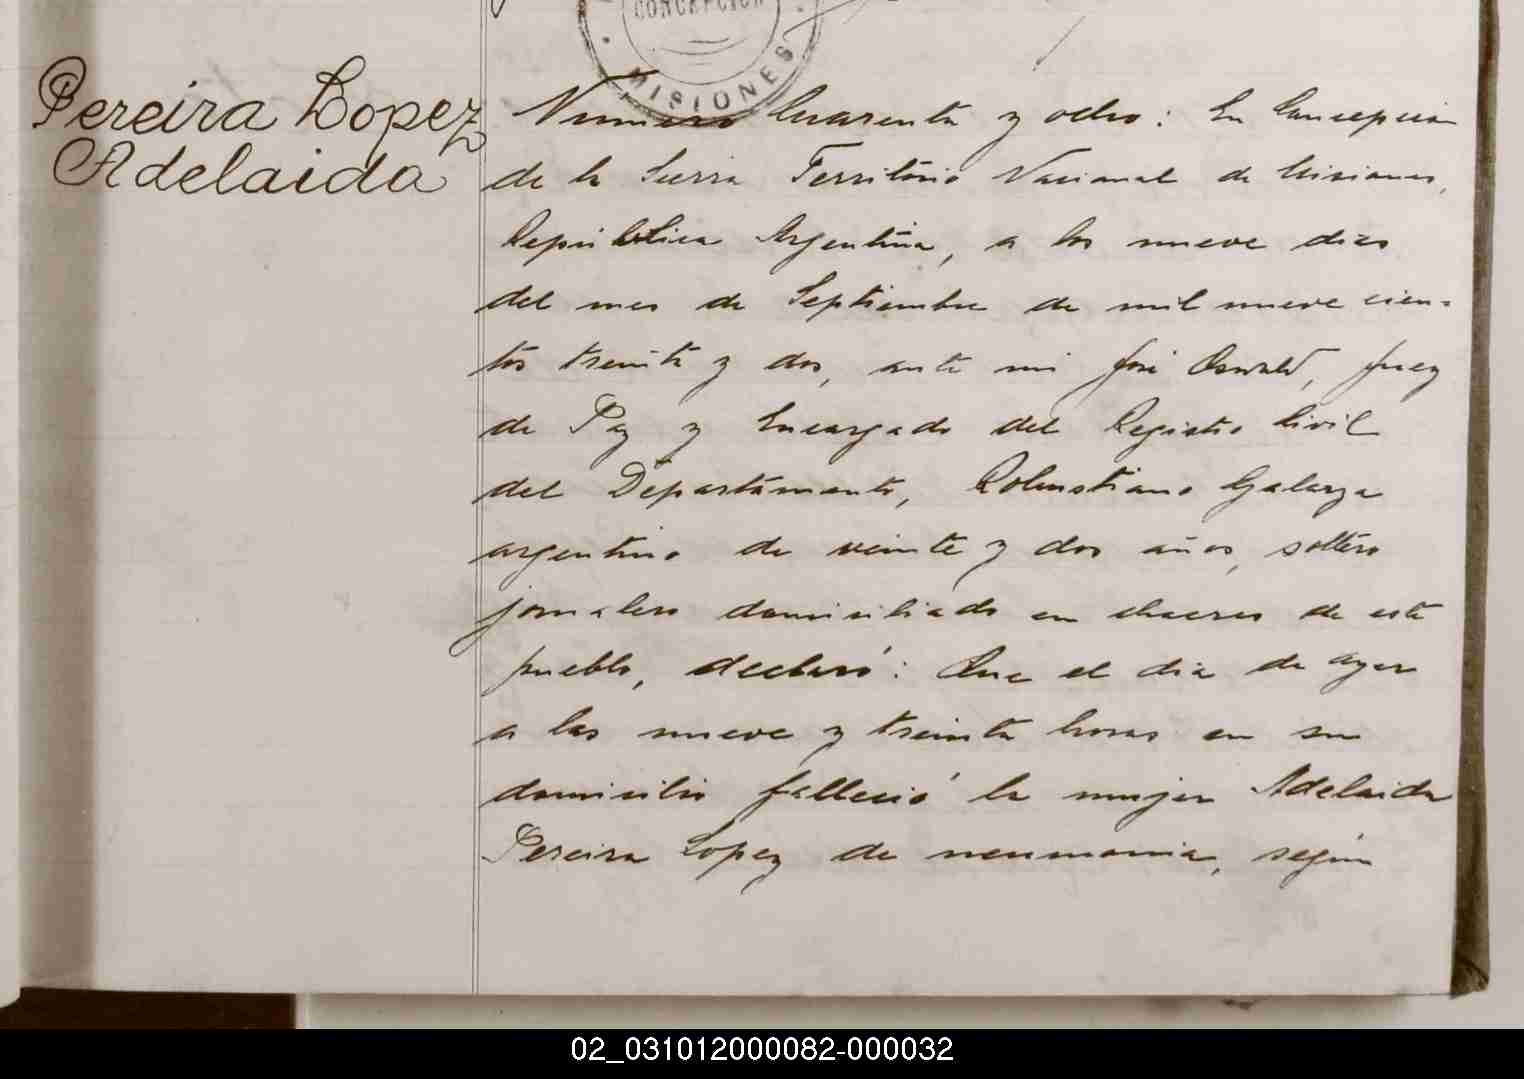 CONCEPCION
MISIONES
Pereira Lopez
Adelaida
Numero Cuarenta y ocho: En Concepción
de la Sierra Territorio Nacional de Misiones,
República Argentina, a los nueve dias
del mes de Septiembre de mil nueve cien-
tos treinta y dos, ante mi José Oswald, Juez
de Paz y Encargado del Registro Civil
del Departamento, Robustiano Galarza
argentino de veinte y dos años, soltero
jornalero domiciliado en chacras de este
pueblo, declaró: Que el dia de ayer
a las nueve y treinta horas en su
domicilio falleció la mujer Adelaida
Pereira Lopez de neumonia, según
02_031012000082-000032